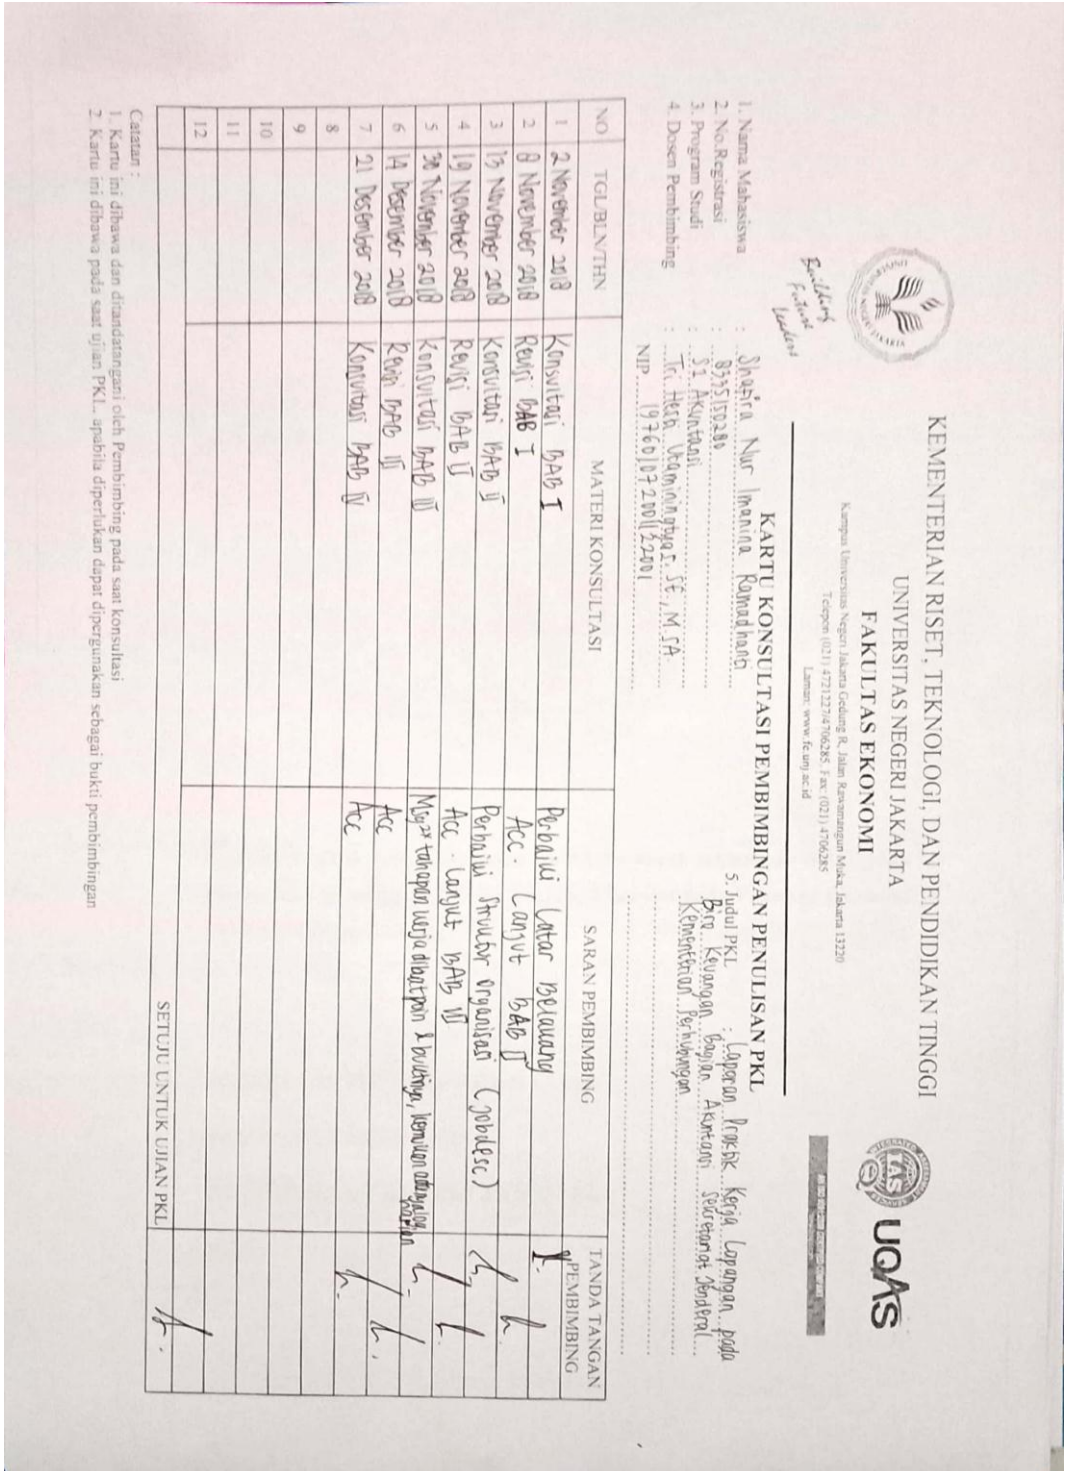 KEMENTERIAN RISET, TEKNOLOGI, DAN PENDIDIKAN TINGGI
UNIVERSITAS NEGERI JAKARTA
FAKULTAS EKONOMI
Kampus Universitas Negeri Jakarta Gedung R, Jalan Rawamangun Muka, Jakarta 13220
Telepon (021) 4721227/4706285, Fax: (021) 4706285
Laman: www.fe.unj.ac.id
Building
Future
Leaders
UQAS
KARTU KONSULTASI PEMBIMBINGAN PENULISAN PKL
1. Nama Mahasiswa : Shafira Nur Imanina Ramadhanti
2. No.Registrasi : 8335150280
3. Program Studi : S1 Akuntansi
4. Dosen Pembimbing : Tri Hesti Utaminingtyas, SE., M.SA.
NIP. 197601072001122001
5. Judul PKL : Laporan Praktik Kerja Lapangan pada
Biro Keuangan Bagian Akuntansi Sekretariat Jenderal
Kementerian Perhubungan
NO TGL/BLN/THN MATERI KONSULTASI SARAN PEMBIMBING TANDA TANGAN PEMBIMBING
1 2 November 2018 Konsultasi BAB I Perbaiki Latar Belakang
2 8 November 2018 Revisi BAB I Acc. Lanjut BAB II
3 13 November 2018 Konsultasi BAB II Perbaiki Struktur Organisasi (Jobdesc)
4 19 November 2018 Revisi BAB II Acc. Lanjut BAB III
5 30 November 2018 Konsultasi BAB III tahapan kerja dibuat poin & buktinya,
6 14 Desember 2018 Revisi BAB III Acc
7 21 Desember 2018 Konsultasi BAB IV Acc
8
9
10
11
12
SETUJU UNTUK UJIAN PKL
Catatan :
1. Kartu ini dibawa dan ditandatangani oleh Pembimbing pada saat konsultasi
2. Kartu ini dibawa pada saat ujian PKL, apabila diperlukan dapat dipergunakan sebagai bukti pembimbingan